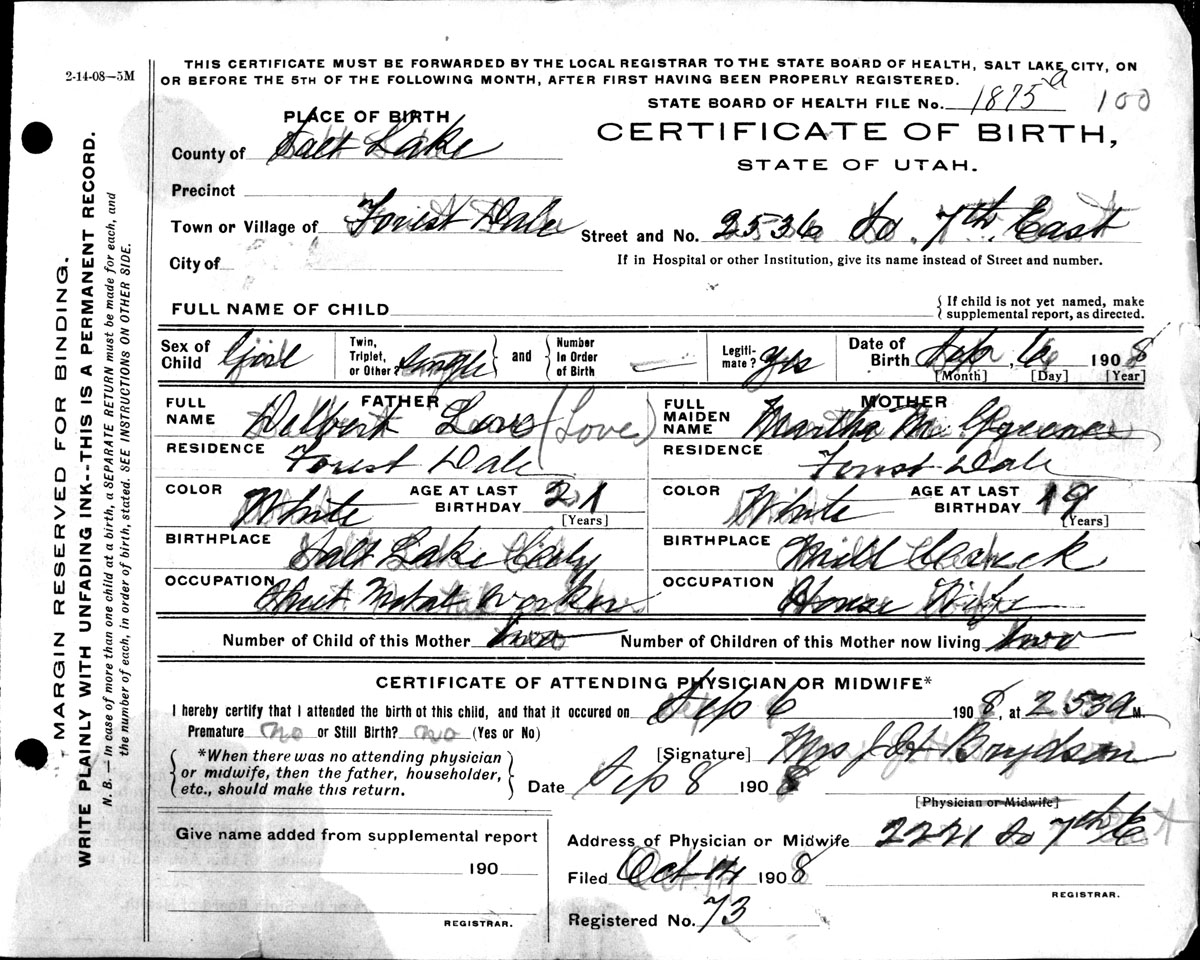 2-14-08—5M
THIS CERTIFICATE MUST BE FORWARDED BY THE LOCAL REGISTRAR TO THE STATE BOARD OF HEALTH, SALT LAKE CITY, ON
OR BEFORE THE 5TH OF THE FOLLOWING MONTH, AFTER FIRST HAVING BEEN PROPERLY REGISTERED.
STATE BOARD OF HEALTH FILE No. 1875 a 100
PLACE OF BIRTH
CERTIFICATE OF BIRTH,
STATE OF UTAH.
County of Salt Lake
Precinct
Town or Village of Forest Dale
Street and No. 2536 So. 7th East
City of
If in Hospital or other Institution, give its name instead of Street and number.
FULL NAME OF CHILD
{ If child is not yet named, make
supplemental report, as directed.
Sex of Child Girl
Twin, Triplet, or Other? Single } and { Number In Order of Birth —
Legiti-mate? Yes
Date of Birth Sep. 6 1908
[Month] [Day] [Year]
FATHER
FULL NAME Delbert Love (Love)
RESIDENCE Forest Dale
COLOR White AGE AT LAST BIRTHDAY 21
[Years]
BIRTHPLACE Salt Lake City
OCCUPATION Sheet Metal Worker
MOTHER
FULL MAIDEN NAME Martha M.
RESIDENCE Forest Dale
COLOR White AGE AT LAST BIRTHDAY 19
[Years]
BIRTHPLACE Mill Creek
OCCUPATION House Wife
Number of Child of this Mother two Number of Children of this Mother now living two
CERTIFICATE OF ATTENDING PHYSICIAN OR MIDWIFE*
I hereby certify that I attended the birth of this child, and that it occured on Sep 6 1908, at 2 53 a M.
Premature no or Still Birth? no (Yes or No)
{ *When there was no attending physician
or midwife, then the father, householder,
etc., should make this return. }
[Signature] Mrs J H Brydson
Date Sep 8 1908
[Physician or Midwife]
Address of Physician or Midwife 2221 So 7th E
Give name added from supplemental report
190
REGISTRAR.
Filed Oct 14 1908
REGISTRAR.
Registered No. 73
MARGIN RESERVED FOR BINDING.
WRITE PLAINLY WITH UNFADING INK--THIS IS A PERMANENT RECORD.
N. B. — In case of more than one child at a birth, a SEPARATE RETURN must be made for each, and
the number of each, in order of birth, stated. SEE INSTRUCTIONS ON OTHER SIDE.